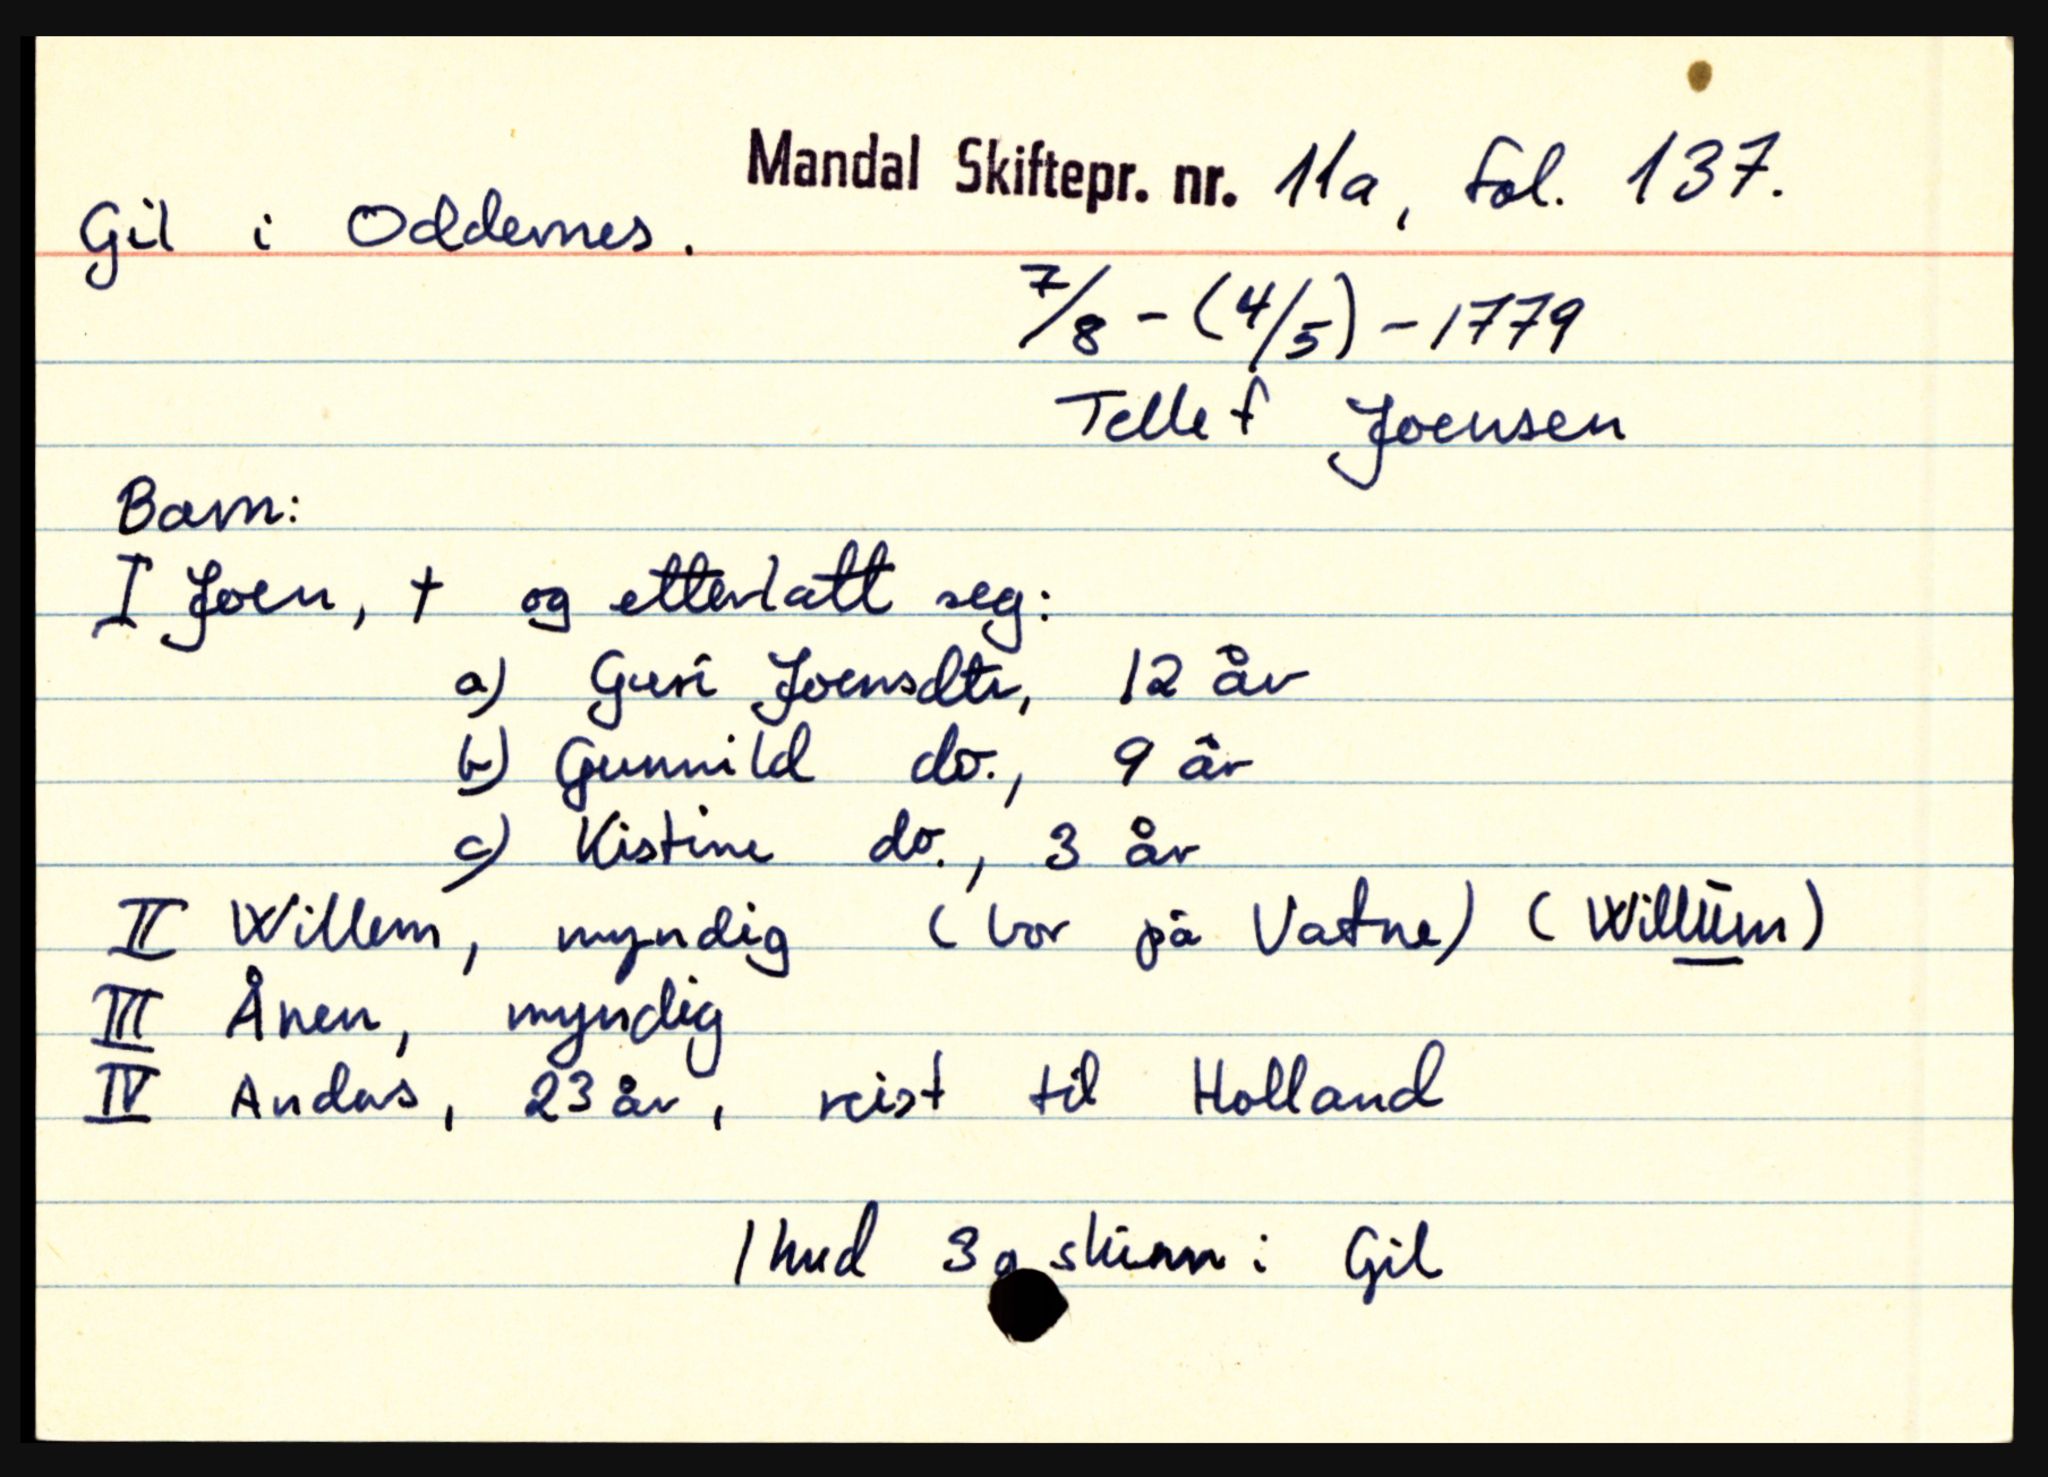 Mandal Skiftepr. nr. 11a, fol. 137.
Gil i Oddernes.
7/8 - (4/5) - 1779
Tellef Joensen
Barn:
I Joen, † og etterlatt seg:
a) Guri Joensdtr, 12 år
b) Gunnild do., 9 år
c) Kistine do., 3 år
II Willem, myndig (bor på Vatne) (Willum)
III Ånen, myndig
IV Anders, 23 år, reist til Holland
1 hud 3 skinn i Gil